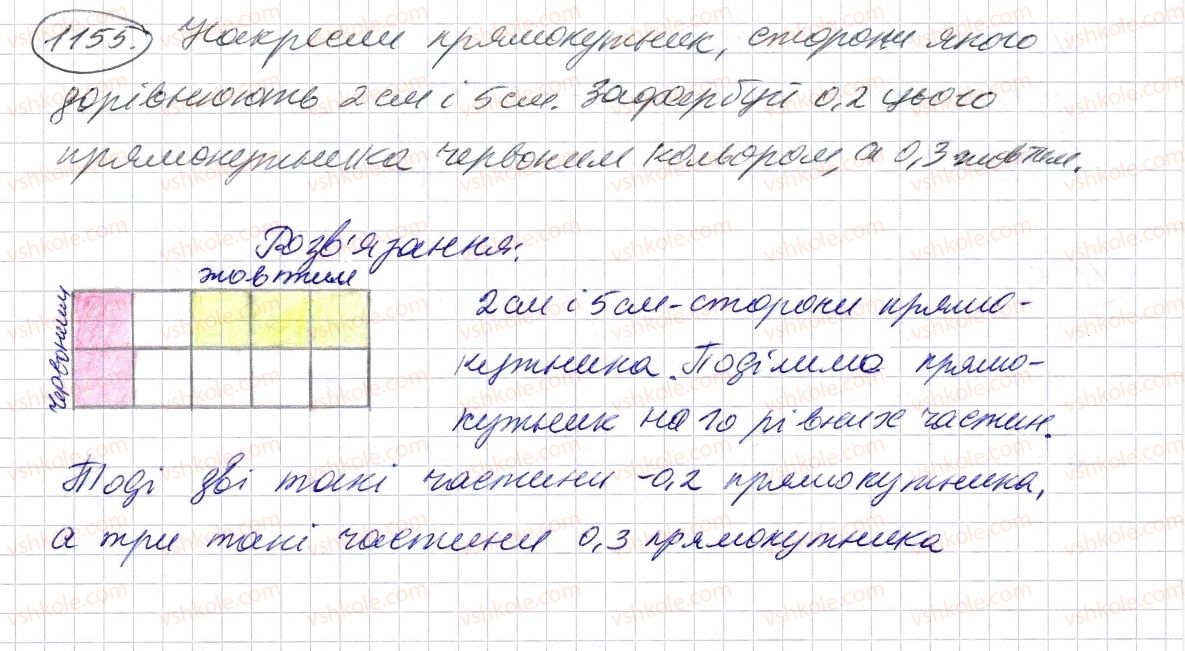 1155. Накресли прямокутник, сторони якого
дорівнюють 2 см і 5 см. Зафарбуй 0,2 цього
прямокутника червоним кольором, а 0,3 жовтим.
Розв'язання:
жовтим
червоним
2 см і 5 см - сторони прямо-
кутника. Поділимо прямо-
кутник на 10 рівних частин.
Тоді дві такі частини - 0,2 прямокутника,
а три такі частини 0,3 прямокутника
vshkole.com